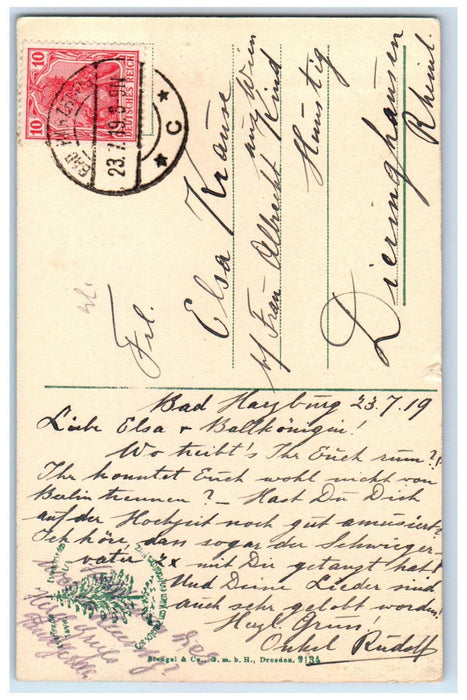 10 10
DEUTSCHES REICH
23.7.19.
* C *
Frl.
Elsa Krause
aus Wien
b/ Frau Albrecht Kind
Hunstig
Dieringhausen
Rheinl.
Bad Harzburg 23.7.19
Liebe Elsa + Ballkönigin!
Wo treibt's Ihr Euch rum?!
Ihr konntet Euch wohl nicht von
Berlin trennen? – Hast Du Dich
auf der Hochzeit noch gut amüsiert?
Ich höre, dass sogar der Schwieger-
vater 7x mit Dir getanzt hat!
Und Deine Lieder sind
auch sehr gelobt worden!
Herzl. Gruss!
Onkel Rudolf
Herzl. Gruss
Stengel & Co., G. m. b. H., Dresden. 9134